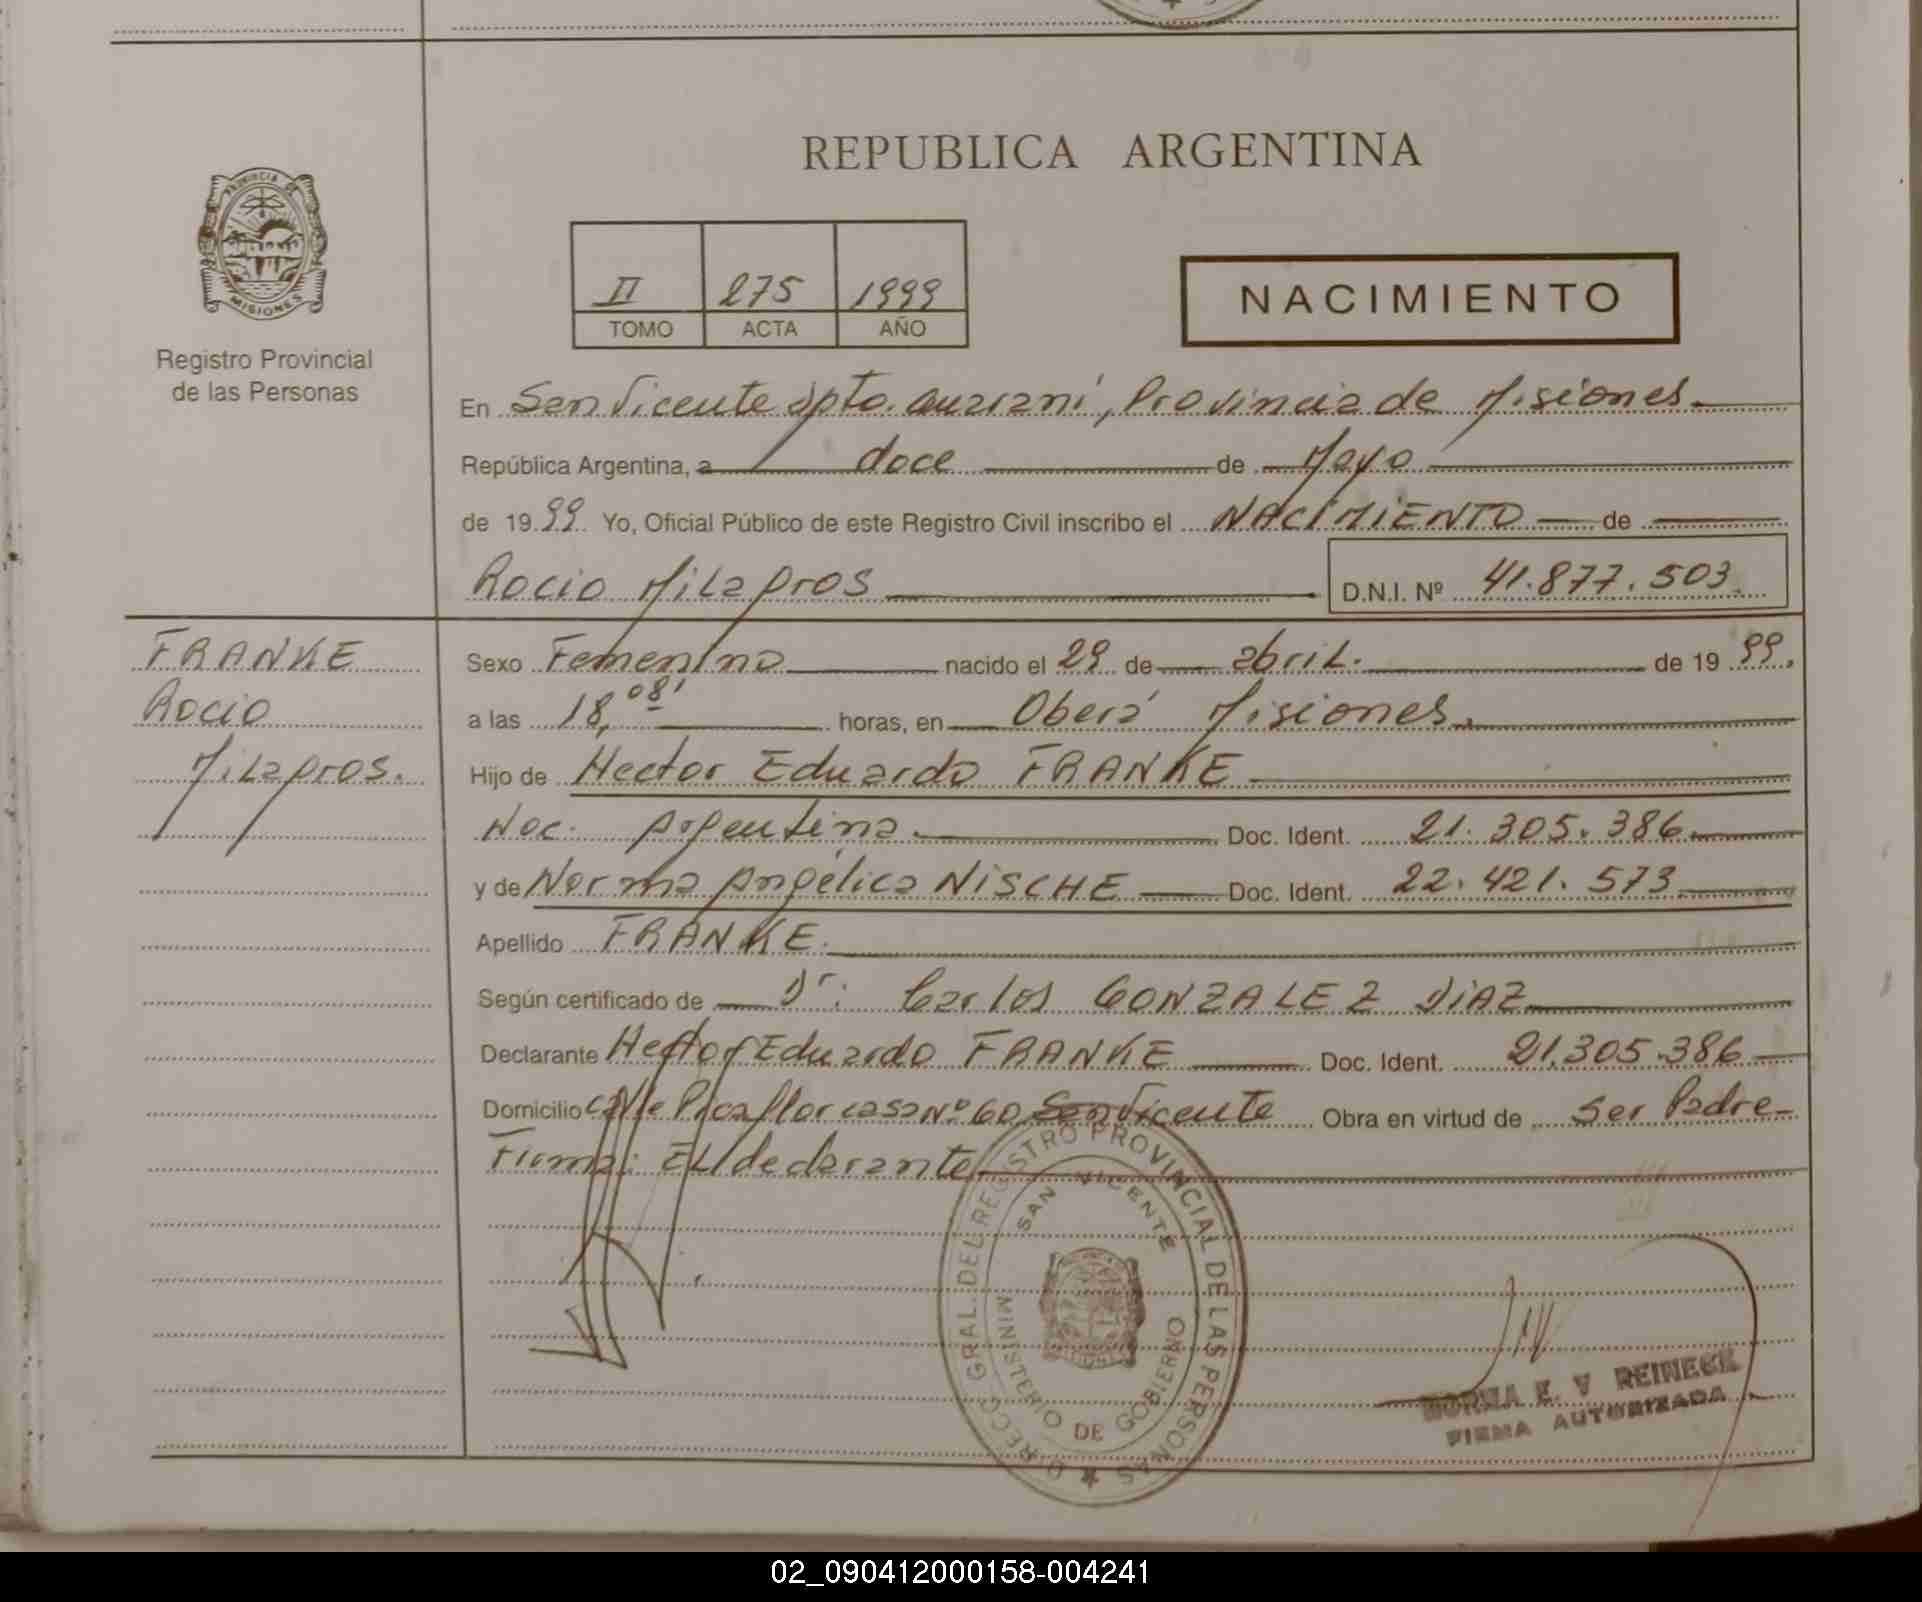 REPUBLICA ARGENTINA
PROVINCIA DE
MISIONES
Registro Provincial
de las Personas
II 275 1999
TOMO ACTA AÑO
NACIMIENTO
En San Vicente dpto. Guaraní, Provincia de Misiones
República Argentina, a doce de Mayo
de 1999 Yo, Oficial Público de este Registro Civil inscribo el NACIMIENTO de
Rocio Milagros D.N.I. Nº 41.877.503.
FRANKE
Rocio
Milagros.
Sexo Femenino nacido el 29 de abril. de 1999.
a las 18,08' horas, en Oberá Misiones.
Hijo de Hector Eduardo FRANKE
Nac. Argentina. Doc. Ident. 21.305.386
y de Norma Angélica NISCHE Doc. Ident. 22.421.573
Apellido FRANKE.
Según certificado de Dr. Carlos GONZALEZ DIAZ
Declarante Hector Eduardo FRANKE Doc. Ident. 21.305.386
Domicilio Calle Picaflor casa Nº 60 San Vicente Obra en virtud de Ser Padre
Firma: El declarante
DIRECC. GRAL. DEL REGISTRO PROVINCIAL DE LAS PERSONAS
SAN VICENTE
MINISTERIO DE GOBIERNO
NORMA E. V REINECK
FIRMA AUTORIZADA
02_090412000158-004241